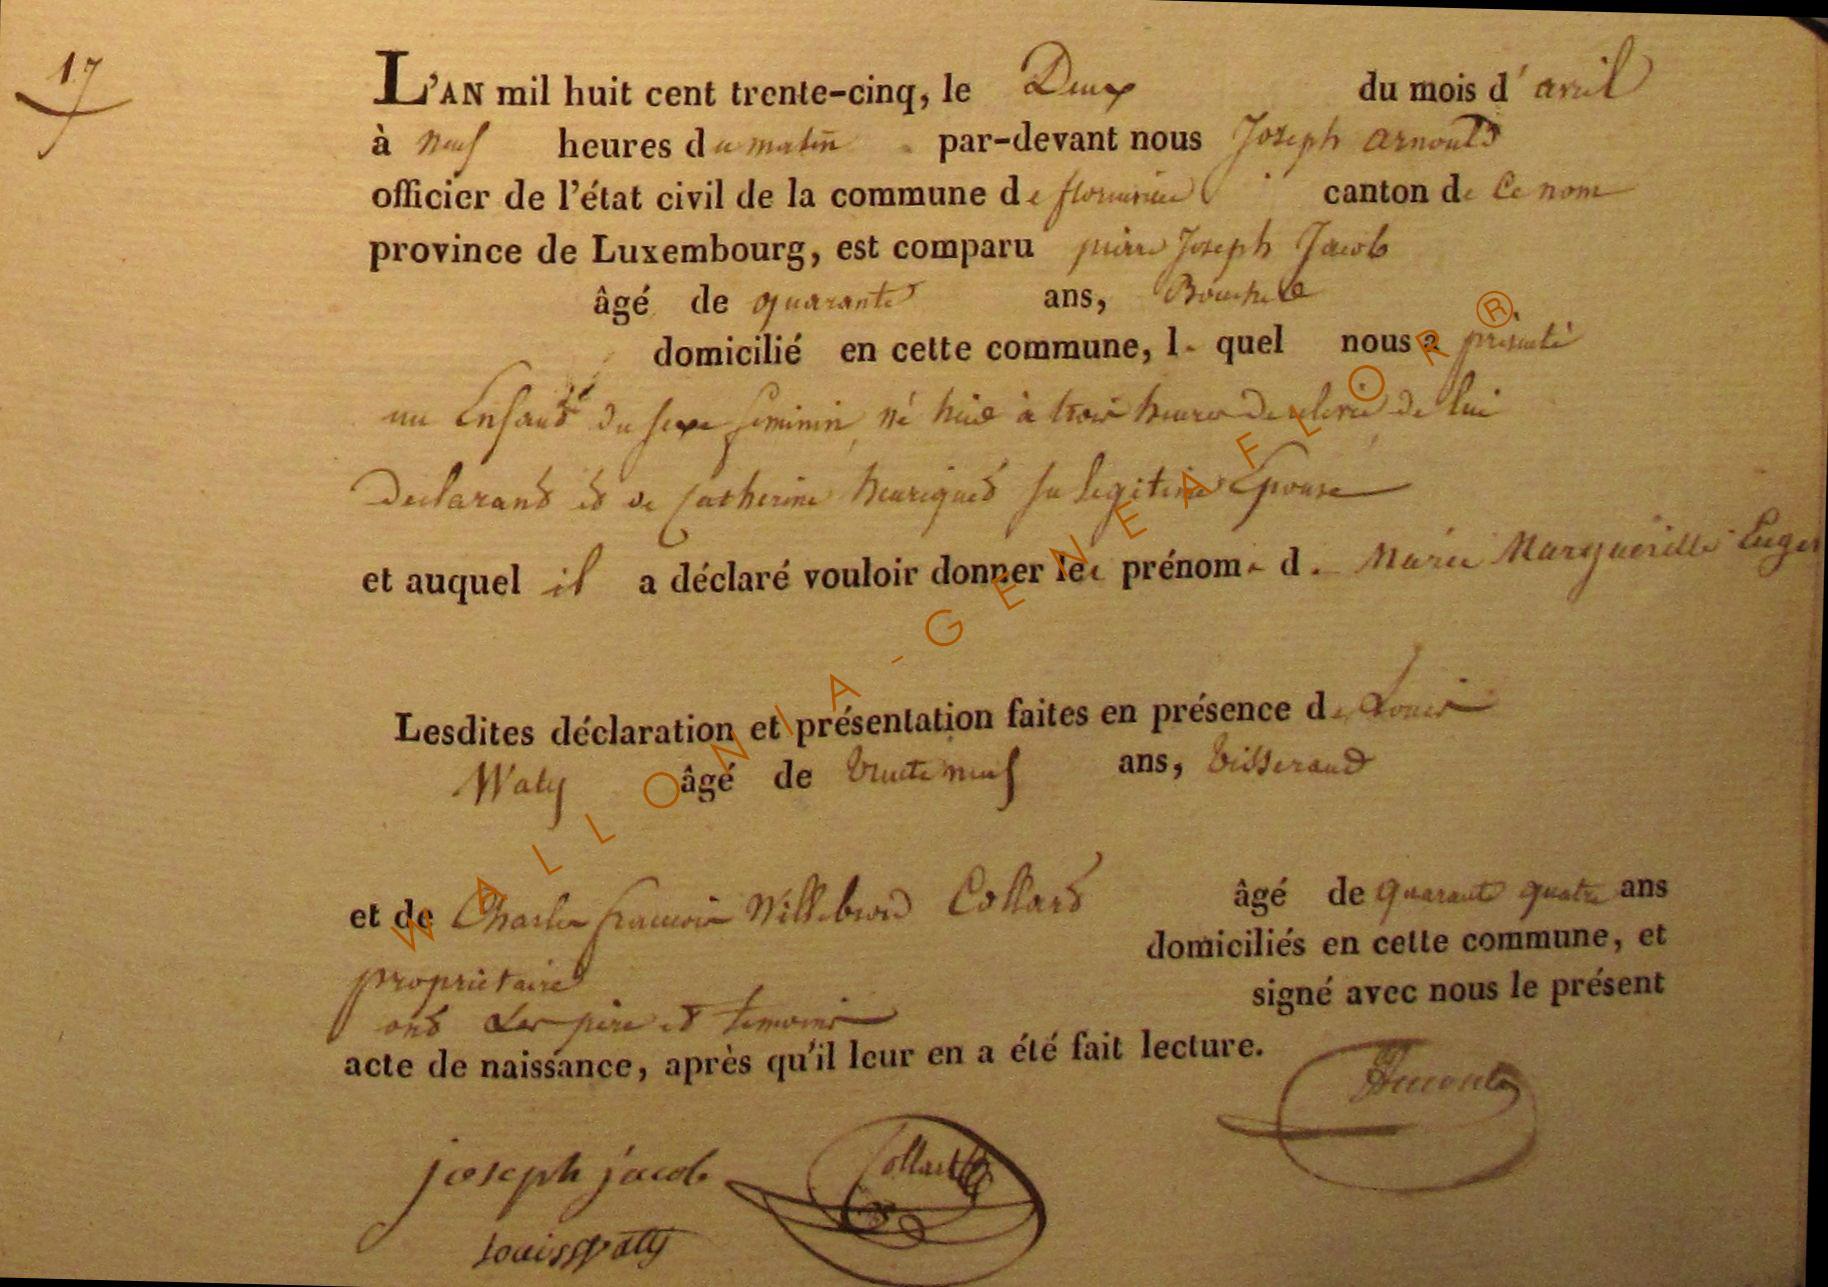 17
L'AN mil huit cent trente-cinq, le Deux du mois d'avril
à neuf heures du matin par-devant nous Joseph Arnould
officier de l'état civil de la commune de florenville canton de Ce nom
province de Luxembourg, est comparu pierre Joseph Jacob
âgé de quarante ans,
domicilié en cette commune, l- quel nous a présenté
un Enfant du sexe feminin, né hier à trois heures de relevée de lui
Declarant et de Catherine henriquet sa legitime Epouse
et auquel il a déclaré vouloir donner les prénoms d. Marie Margueritte Euge
Lesdites déclaration et présentation faites en présence de Louis
Waty âgé de trente neuf ans, tisserand
et de Charles francois Willebrord Collard âgé de quarante quatre ans
domiciliés en cette commune, et
propriétaire
signé avec nous le présent
ont Les père et temoins
acte de naissance, après qu'il leur en a été fait lecture.
Arnould
joseph jacob Collart
louis Waty
WALLONIA-GENEAFLOR®